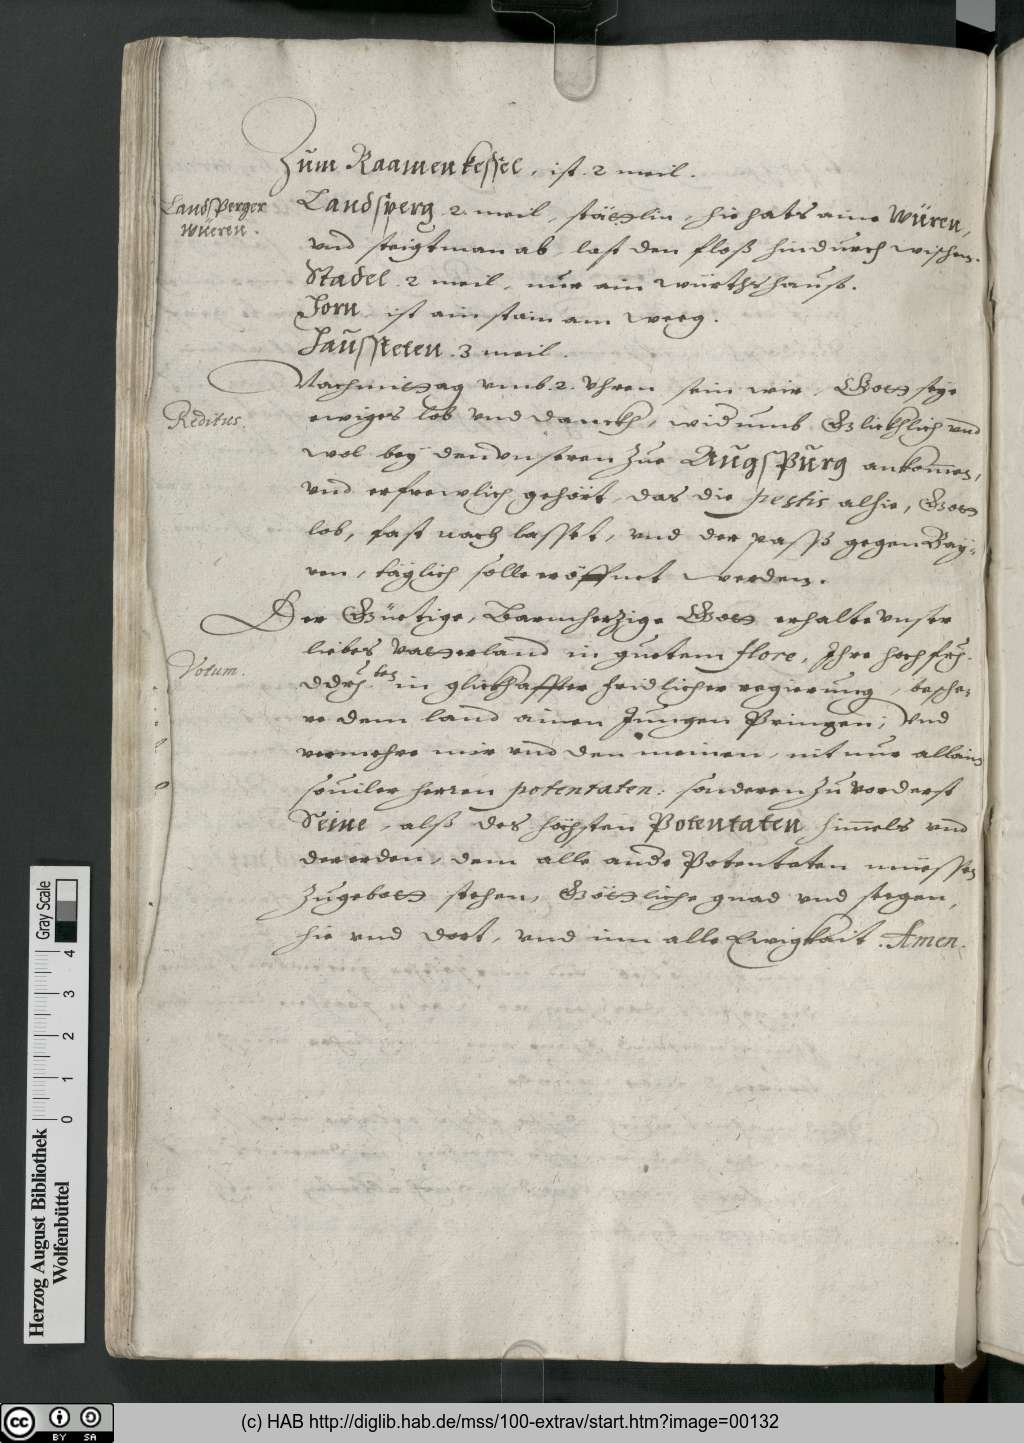 Zum Raamenkessel, ist 2 meil.
Landsperger
wüeren.
Landsperg 2. meil, stättlin, hie hats aine Würen,
vnd steigt man ab, last den floß hindurch wischen.
Stadel 2 meil, nur ain würthshauß.
Jorn, ist ain stain am weeg.
Haussteten 3 meil.
Nachmittag vmb 2. Vhren sein wir, Gott seye
Reditus.
ewiges lob vnd danckh, widumb Glickhlich vnd
wol bey den vnseren zue Augspurg ankom̄en,
vnd erfrewlich gehört, das die pestis alhie, Gott
lob, fast nach lasset, vnd der passs gegen Bay-
ren, täglich solle eröffnet werden.
Der Güetige, Barmherzige Gott erhalte vnser
liebes Vatterland in guetem flore, Ihre hochfrl.
Votum.
ddrl. in glickhaffter fridlicher regierung, besche-
re dem land ainen Jungen Prinzen; Vnd
vermehre mir vnd den meinen, nit nur allain
souiler herren potentaten: sonderen zu vorderst
Seine, alß des höchsten Potentaten him̄els vnd
der erden, dem alle ande Potentaten müessen
zugebott stehen, Göttliche gnad vnd seegen,
hie vnd dort, vnd inn alle Ewigkait. Amen.
Herzog August Bibliothek
Wolfenbüttel
0 1 2 3 4
Gray Scale
cc BY SA
(c) HAB http://diglib.hab.de/mss/100-extrav/start.htm?image=00132